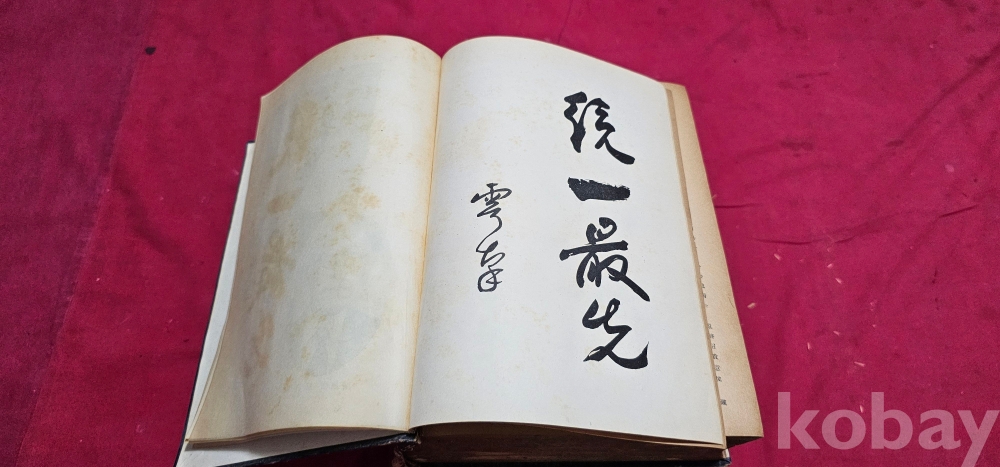 統一最先
雩南
kobay